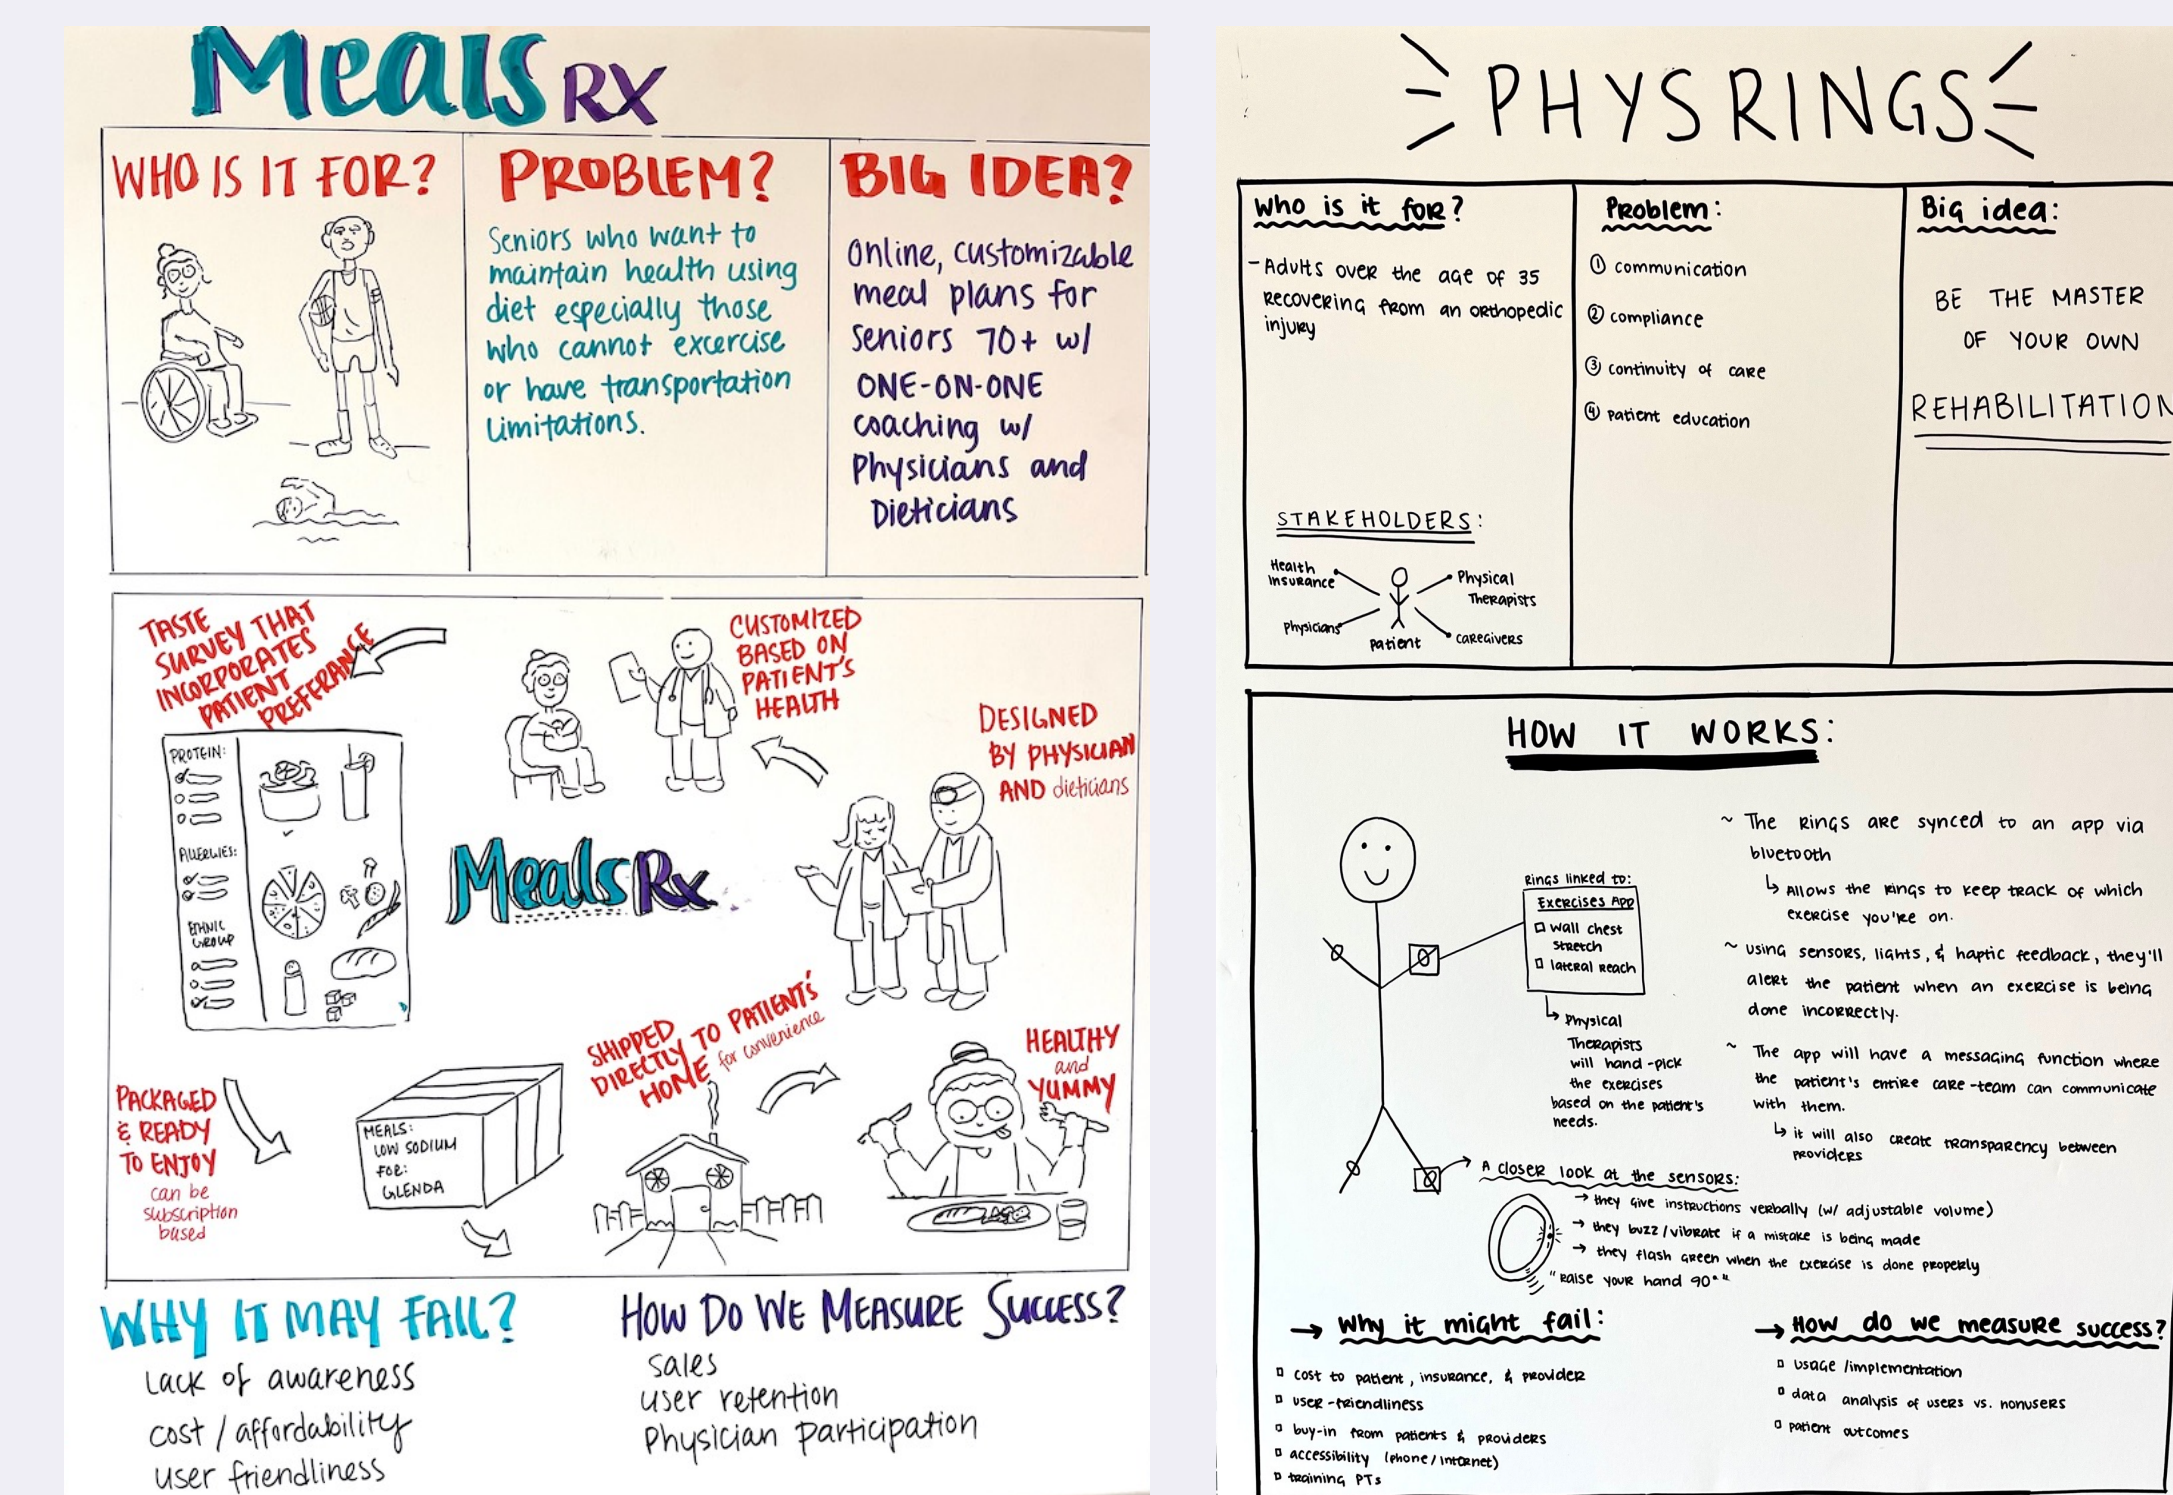 Meals RX
WHO IS IT FOR?
PROBLEM?
Seniors who want to
maintain health using
diet especially those
who cannot excercise
or have transportation
limitations.
BIG IDEA?
Online, customizable
meal plans for
seniors 70+ w/
ONE-ON-ONE
coaching w/
Physicians and
Dieticians
TASTE
SURVEY THAT
INCORPORATES
PATIENT
PREFERANCE
CUSTOMIZED
BASED ON
PATIENT'S
HEALTH
DESIGNED
BY PHYSICIAN
AND dieticians
PROTEIN:
ALLERGIES:
ETHNIC
GROUP
Meals Rx
PACKAGED
& READY
TO ENJOY
can be
subscription
based
MEALS:
LOW SODIUM
FOR:
GLENDA
SHIPPED
DIRECTLY TO PATIENT'S
HOME for convenience
HEALTHY
and
YUMMY
WHY IT MAY FAIL?
Lack of awareness
cost / affordability
user friendliness
HOW DO WE MEASURE SUCCESS?
sales
user retention
Physician Participation
PHYSRINGS
Who is it for?
- Adults over the age of 35
recovering from an orthopedic
injury
STAKEHOLDERS:
Health
Insurance
Physicians
Patient
Physical
Therapists
caregivers
Problem:
① communication
② compliance
③ continuity of care
④ patient education
Big idea:
BE THE MASTER
OF YOUR OWN
REHABILITATION
HOW IT WORKS:
Rings linked to:
Exercises App
□ wall chest
stretch
□ lateral reach
↳ Physical
Therapists
will hand-pick
the exercises
based on the patient's
needs.
~ The rings are synced to an app via
bluetooth
↳ Allows the rings to keep track of which
exercise you're on.
~ using sensors, lights, & haptic feedback, they'll
alert the patient when an exercise is being
done incorrectly.
~ The app will have a messaging function where
the patient's entire care-team can communicate
with them.
↳ it will also create transparency between
providers
A closer look at the sensors:
→ they give instructions verbally (w/ adjustable volume)
→ they buzz/vibrate if a mistake is being made
→ they flash green when the exercise is done properly
"Raise your hand 90°"
→ Why it might fail:
□ cost to patient, insurance, & provider
□ user-friendliness
□ buy-in from patients & providers
□ accessibility (phone/internet)
□ training PTs
→ How do we measure success?
□ usage/implementation
□ data analysis of users vs. nonusers
□ patient outcomes